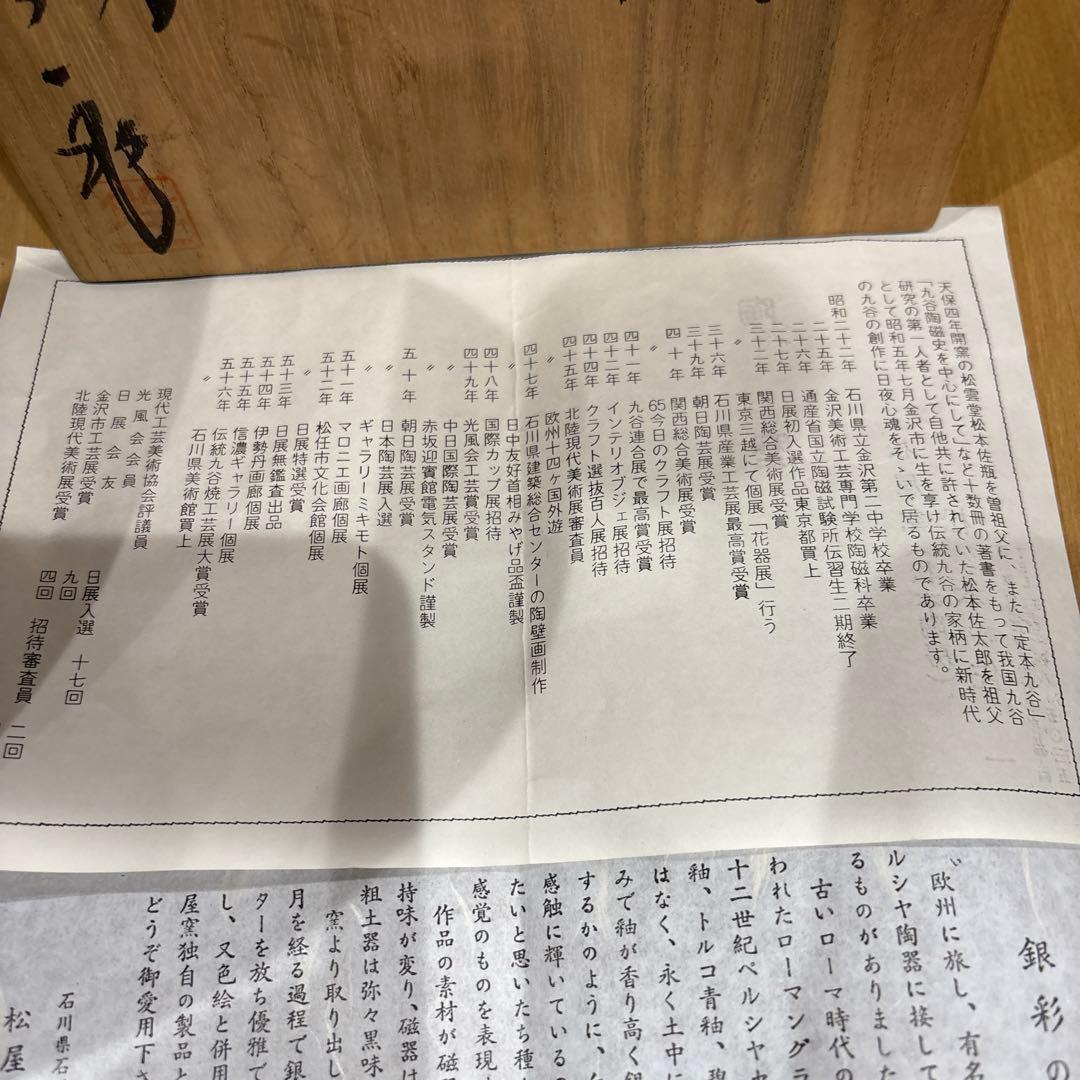 天保四年開窯の松雲堂松本佐瓶を曽祖父に、また「定本九谷」
「九谷陶磁史を中心にして」など十数冊の著書をもって我国九谷
研究の第一人者として自他共に許されていた松本佐太郎を祖父
として昭和五年七月金沢市に生を享け伝統九谷の家柄に新時代
の九谷の創作に日夜心魂をそゝいで居るものであります。
昭和二十二年 石川県立金沢第二中学校卒業
二十五年 金沢美術工芸専門学校陶磁科卒業
二十六年 通産省国立陶磁試験所伝習生二期終了
二十七年 日展初入選作品東京都買上
三十二年 関西総合美術展受賞
〃 東京三越にて個展「花器展」行う
三十六年 石川県産業工芸展最高賞受賞
三十九年 朝日陶芸展受賞
四十年 関西総合美術展受賞
〃 65今日のクラフト展招待
四十一年 九谷連合展で最高賞受賞
四十二年 インテリオブジェ展招待
四十四年 クラフト選抜百人展招待
四十五年 北陸現代美術展審査員
〃 欧州十四ヶ国外遊
四十七年 石川県建築総合センターの陶壁画制作
〃 日中友好首相みやげ品盃謹製
四十八年 国際カップ展招待
四十九年 光風会工芸賞受賞
〃 中日国際陶芸展受賞
〃 赤坂迎賓館電気スタンド謹製
五十年 朝日陶芸展受賞
〃 日本陶芸展入選
〃 ギャラリーミキモト個展
五十一年 マロニエ画廊個展
五十二年 松任市文化会館個展
〃 日展特選受賞
五十三年 日展無鑑査出品
五十四年 伊勢丹画廊個展
五十五年 信濃ギャラリー個展
五十六年 伝統九谷焼工芸展大賞受賞
〃 石川県美術館買上
現代工芸美術協会評議員
光風会会員
日展会友
金沢市工芸展受賞 九回
北陸現代美術展受賞 四回
日展入選 十七回
招待審査員 二回
銀彩の
〃欧州に旅し、有名
ルシヤ陶器に接して
るものがありました
古いローマ時代の
われたローマングラ
十二世紀ペルシヤ
釉、トルコ青釉、
はなく、永く土中に
みで釉が香り高く銀
するかのように、
感触に輝いている
たいと思いたち種
感覚のものを表現
作品の素材が磁
持味が変り、磁器は
粗土器は弥々黒味
窯より取り出し
月を経る過程で銀
ターを放ち優雅で
し、又色絵と併用
屋窯独自の製品と
どうぞ御愛用下さ
石川県石
松屋